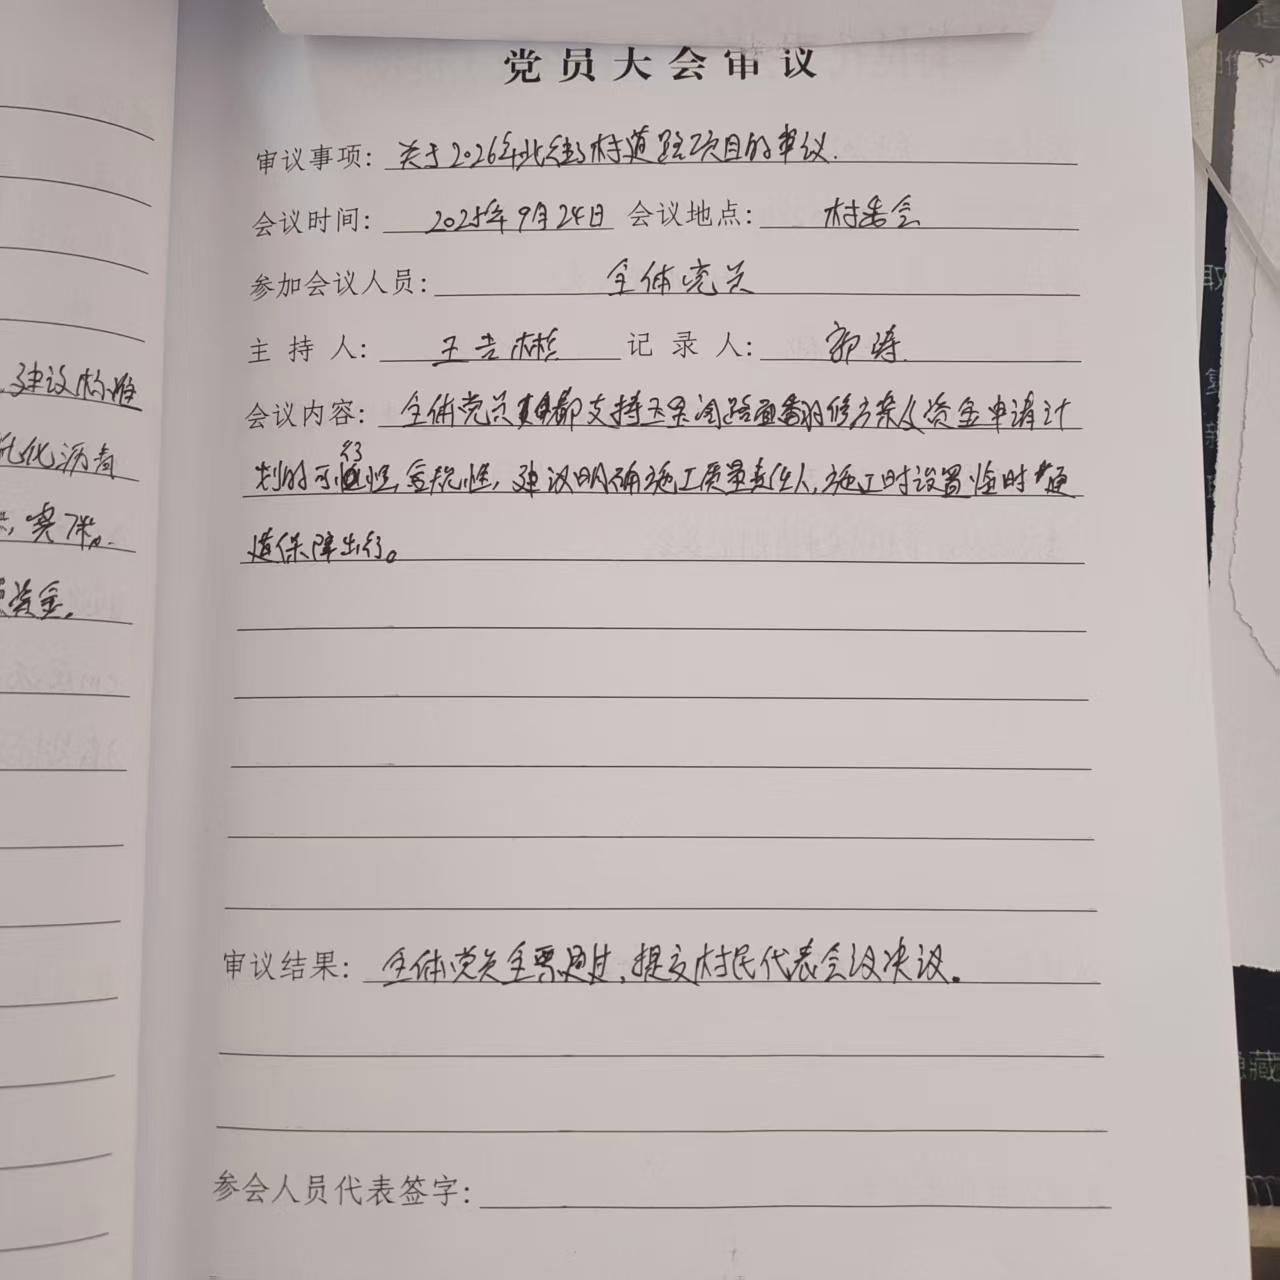 党员大会审议
审议事项: 关于2026年北街村道路项目的审议.
会议时间: 2025年9月24日 会议地点: 村委会
参加会议人员: 全体党员
主持人: 王吉彬 记录人: 郭涛
会议内容: 全体党员都支持路面翻修方案及资金申请计
划的可行性, 合规性, 建议明确施工质量责任人, 施工时设置临时便
道保障出行。
审议结果: 全体党员全票通过, 提交村民代表会议决议。
参会人员代表签字:
建设标准
乳化沥青
资金.
隐藏